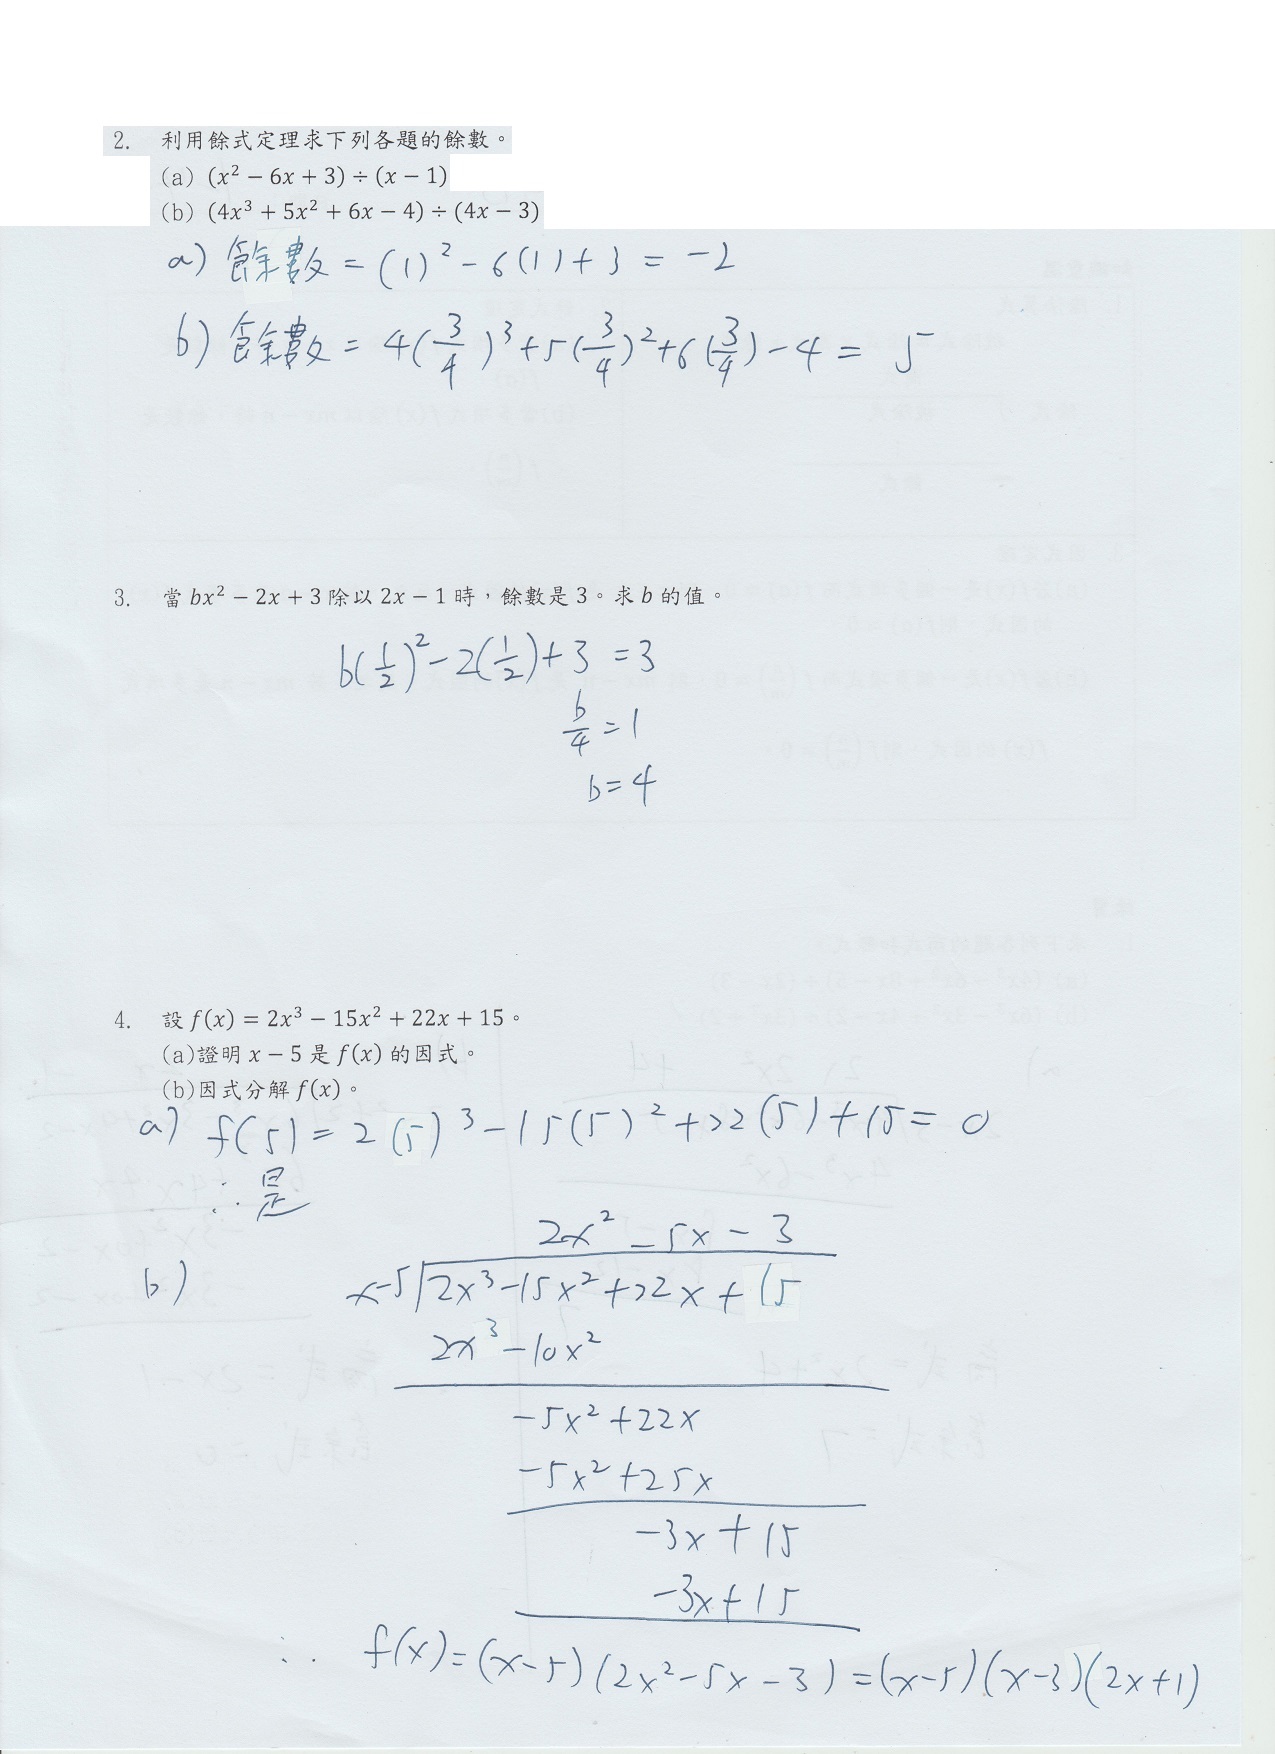 2. 利用餘式定理求下列各題的餘數。
(a) (x² − 6x + 3) ÷ (x − 1)
(b) (4x³ + 5x² + 6x − 4) ÷ (4x − 3)
a) 餘數 = (1)² − 6(1) + 3 = −2
b) 餘數 = 4(3/4)³ + 5(3/4)² + 6(3/4) − 4 = 5
3. 當 bx² − 2x + 3 除以 2x − 1 時，餘數是 3。求 b 的值。
b(1/2)² − 2(1/2) + 3 = 3
b/4 = 1
b = 4
4. 設 f(x) = 2x³ − 15x² + 22x + 15。
(a)證明 x − 5 是 f(x) 的因式。
(b)因式分解 f(x)。
a) f(5) = 2(5)³ − 15(5)² + 22(5) + 15 = 0
∴ 是
2x² − 5x − 3
b) x−5 2x³ − 15x² + 22x + 15
2x³ − 10x²
−5x² + 22x
−5x² + 25x
−3x + 15
−3x + 15
∴ f(x) = (x−5)(2x²−5x−3) = (x−5)(x−3)(2x+1)